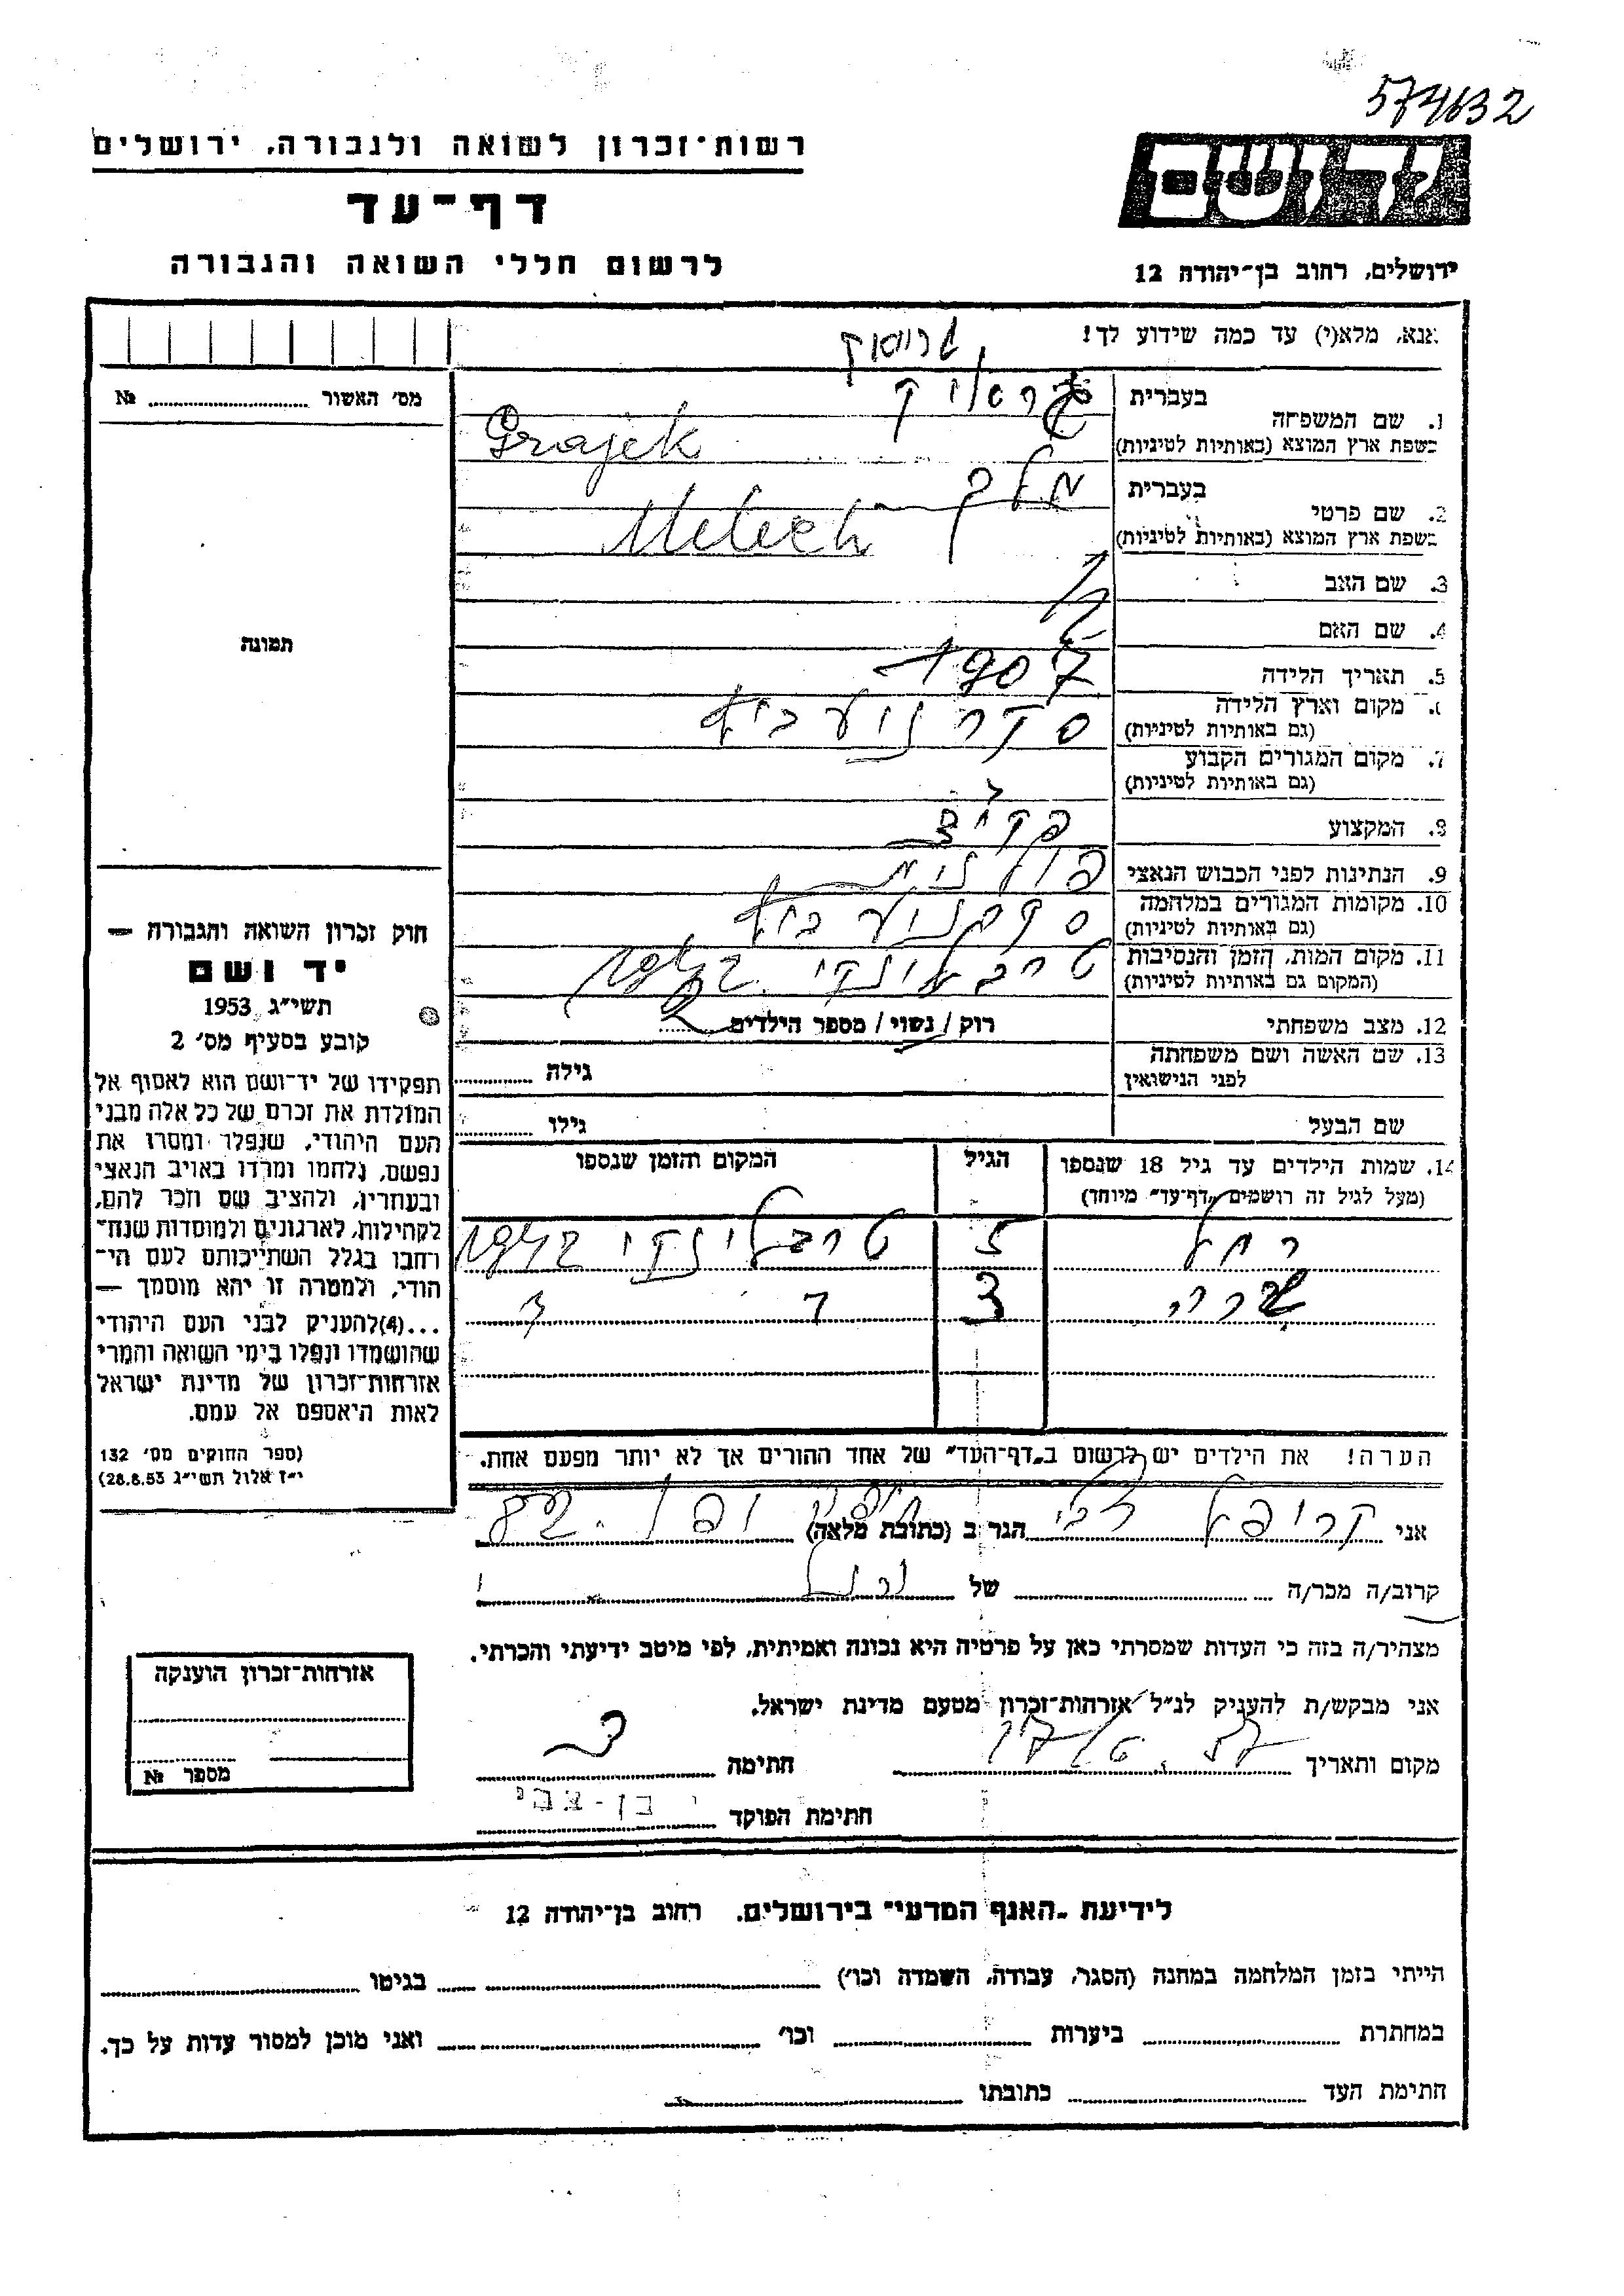 574632
רשות-זכרון לשואה ולגבורה, ירושלים
דף-עד
לרשום חללי השואה והגבורה
ידושם
ירושלים, רחוב בן-יהודה 12
אנא, מלא(י) עד כמה שידוע לך!
מס' האשור № 
תמונה
חוק זכרון השואה והגבורה —
יד ושם
תשי"ג 1953
קובע בסעיף מס' 2
תפקידו של יד-ושם הוא לאסוף אל
המולדת את זכרם של כל אלה מבני
העם היהודי, שנפלו ומסרו את
נפשם, נלחמו ומרדו באויב הנאצי
ובעוזריו, ולהציב שם וזכר להם,
לקהילות, לארגונים ולמוסדות שנח-
רבו בגלל השתייכותם לעם הי-
הודי, ולמטרה זו יהא מוסמך —
...(4) להעניק לבני העם היהודי
שהושמדו ונפלו בימי השואה והמרי
אזרחות-זכרון של מדינת ישראל
לאות היאספם אל עמם.
(ספר החוקים מס' 132
י"ז אלול תשי"ג 28.8.53)
בעברית
1. שם המשפחה
בשפת ארץ המוצא (באותיות לטיניות) Grajek
בעברית מלך
2. שם פרטי
בשפת ארץ המוצא (באותיות לטיניות) Melech
3. שם האב
4. שם האם
5. תאריך הלידה 1907
6. מקום וארץ הלידה
(גם באותיות לטיניות)
7. מקום המגורים הקבוע
(גם באותיות לטיניות)
8. המקצוע פקיד
9. הנתינות לפני הכבוש הנאצי פולנית
10. מקומות המגורים במלחמה
(גם באותיות לטיניות)
11. מקום המות, הזמן והנסיבות טרבלינקי 1942
(המקום גם באותיות לטיניות)
12. מצב משפחתי רוק / נשוי / מספר הילדים 2
13. שם האשה ושם משפחתה
לפני הנישואין גילה
שם הבעל גילו
14. שמות הילדים עד גיל 18 שנספו הגיל המקום והזמן שנספו
(מעל לגיל זה רושמים "דף-עד" מיוחד)
רחל 5 טרבלינקי 1942
שרה 3
הערה! את הילדים יש לרשום ב"דף-העד" של אחד ההורים אך לא יותר מפעם אחת.
אני הגר ב (כתובת מלאה) 82
קרוב/ה מכר/ה של
מצהיר/ה בזה כי העדות שמסרתי כאן על פרטיה היא נכונה ואמיתית, לפי מיטב ידיעתי והכרתי.
אני מבקש/ת להעניק לנ"ל אזרחות-זכרון מטעם מדינת ישראל.
מקום ותאריך חתימה
חתימת הפוקד בן-צבי
אזרחות-זכרון הוענקה
מספר №
לידיעת "האגף המדעי" בירושלים, רחוב בן-יהודה 12
הייתי בזמן המלחמה במחנה (הסגר, עבודה, השמדה וכו') בגיטו
במחתרת ביערות וכו' ואני מוכן למסור עדות על כך.
חתימת העד כתובתו